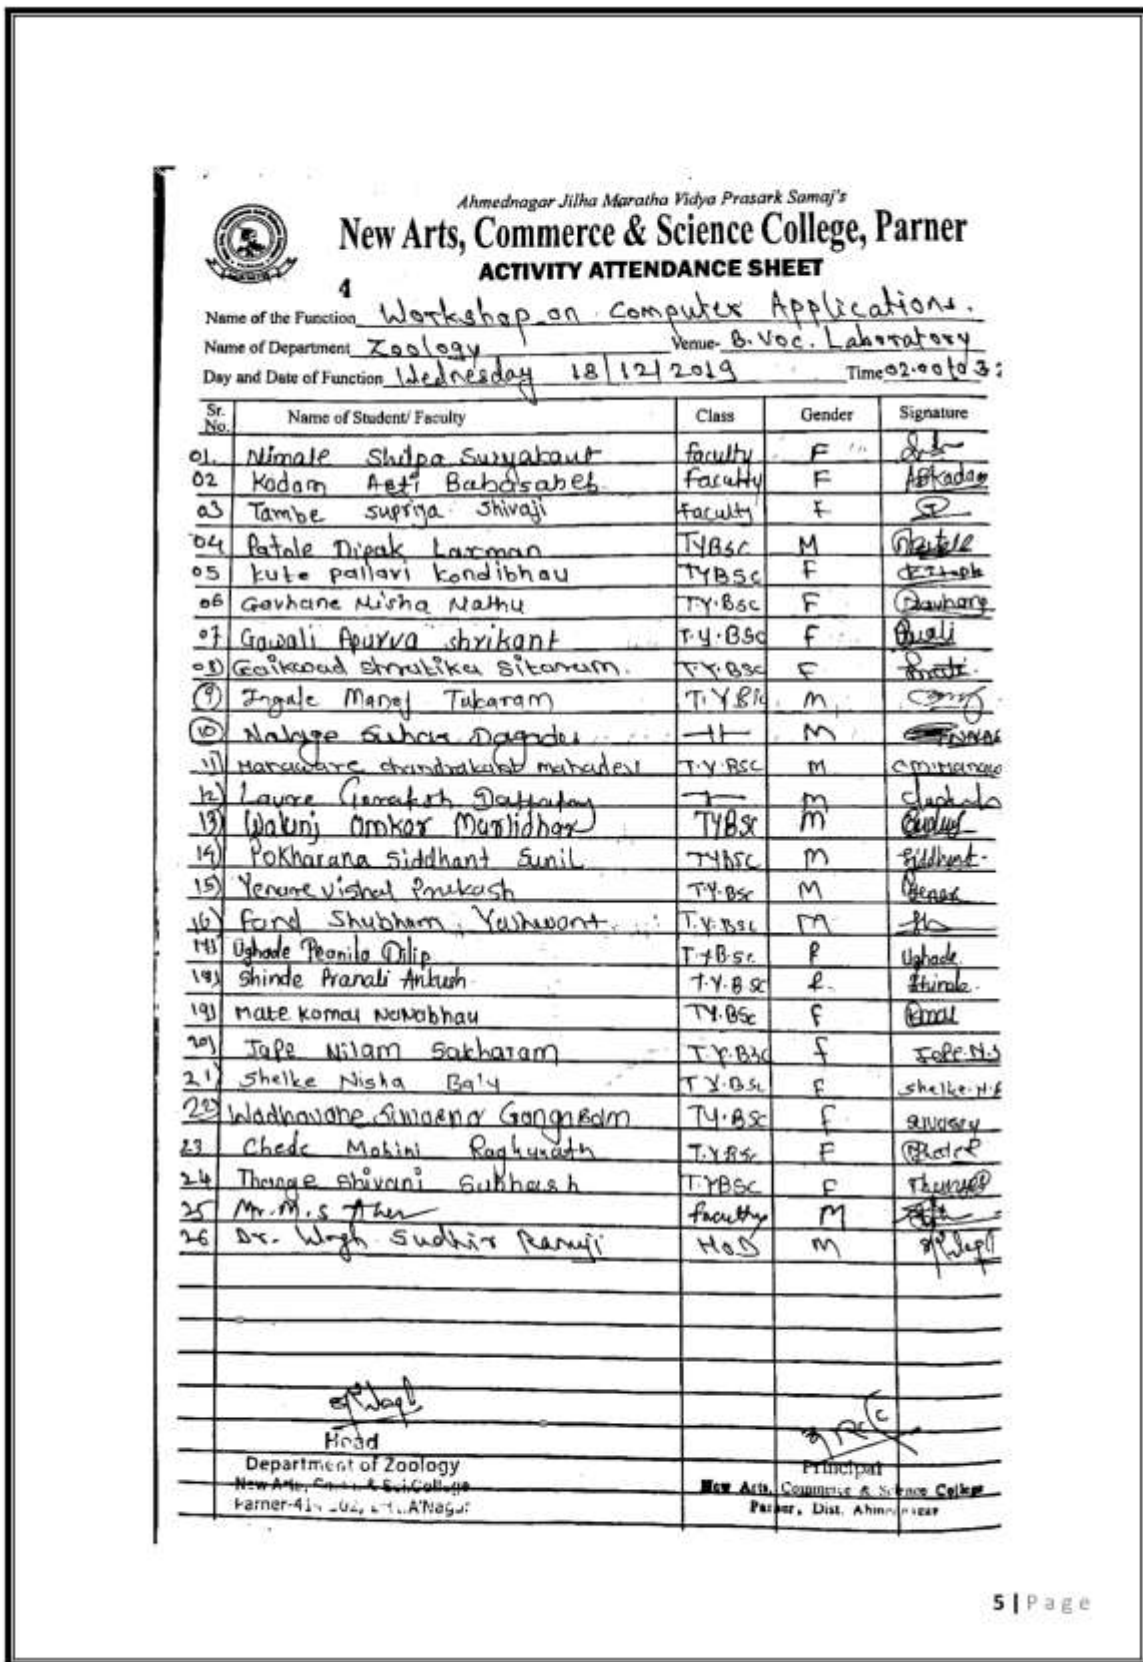 Ahmednagar Jilha Maratha Vidya Prasark Samaj's
New Arts, Commerce & Science College, Parner
ACTIVITY ATTENDANCE SHEET
4
Name of the Function Workshop on Computer Applications.
Name of Department Zoology Venue- B.Voc. Laboratory
Day and Date of Function Wednesday 18/12/2019 Time 02.00 to 3:
Sr. No. Name of Student/ Faculty Class Gender Signature
01. Nimale Shilpa Suryakant faculty F
02 Kadam Aeti Babasaheb Faculty F ABKadam
03 Tambe Supriya Shivaji Faculty F
04 Patole Dipak Laxman TYBSC M
05 kute pallavi kondibhau TYBSC F
06 Gavhane Nisha Nathu T.Y.BSC F Gavhane
07 Gawali Apurva Shrikant T.Y.BSC F
08) Gaikwad Shrutika Sitaram. T.Y.BSC F
9 Ingale Manoj Tukaram T.Y BSc M
10 Dagadu —11— M
11) Hanaware chandrakant mahadev T.Y.BSC M
12) Lavre M
13) Walunj Omkar Murlidhar TYBSC M
14) Pokharana Siddhant Sunil TYBSC M Siddhant
15) Yenare vishal Prakash T.Y.BSC M
16) Fand Shubham Yashwant T.Y.BSC M
17) Ughade Dilip T.Y.B.Sc. F Ughade
18) Shinde Pranali Ankush T.Y.B SC F. Shinde
19) Mate Komal NaNabhau TY.BSC F
20) Jape Nilam Sakharam T.Y.BSC f Jape.N.S
21) Shelke Nisha T.Y.BSC F Shelke.N.B
22) Wadhavane TY.BSC F
23 Chede Mohini Raghunath T.Y.BSc F
24 Thange Shivani Subhash T.YBSC F
25 Mr. M.S Aher faculty M
26 Dr. Wagh Sudhir Ramji HOD M
Head
Department of Zoology
New Arts, Comm. & Sci. College
Parner-
Principal
New Arts, Commerce & Science College
Parner, Dist. Ahmednagar
5 | Page